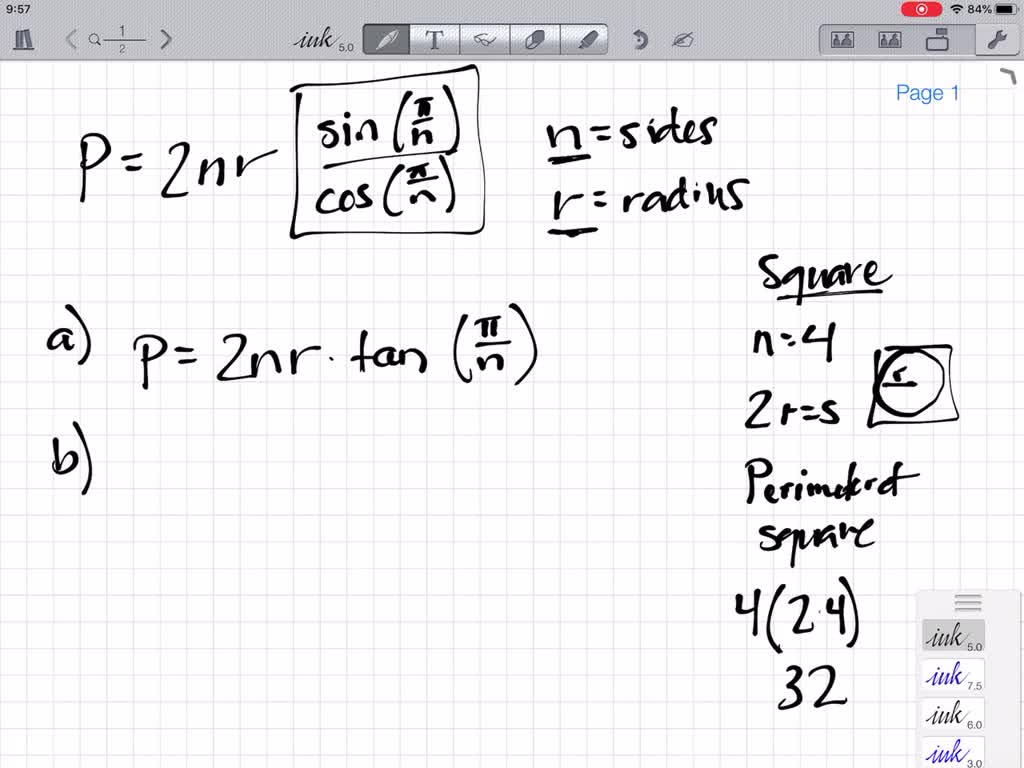 9:57
84%
1/2
ink 5.0
T
Page 1
P = 2nr sin(π/n) / cos(π/n)
n = sides
r = radius
a) P = 2nr · tan (π/n)
b)
Square
n=4
2r=s
r
square
4(2·4)
32
ink 5.0
ink 7.5
ink 6.0
ink 3.0